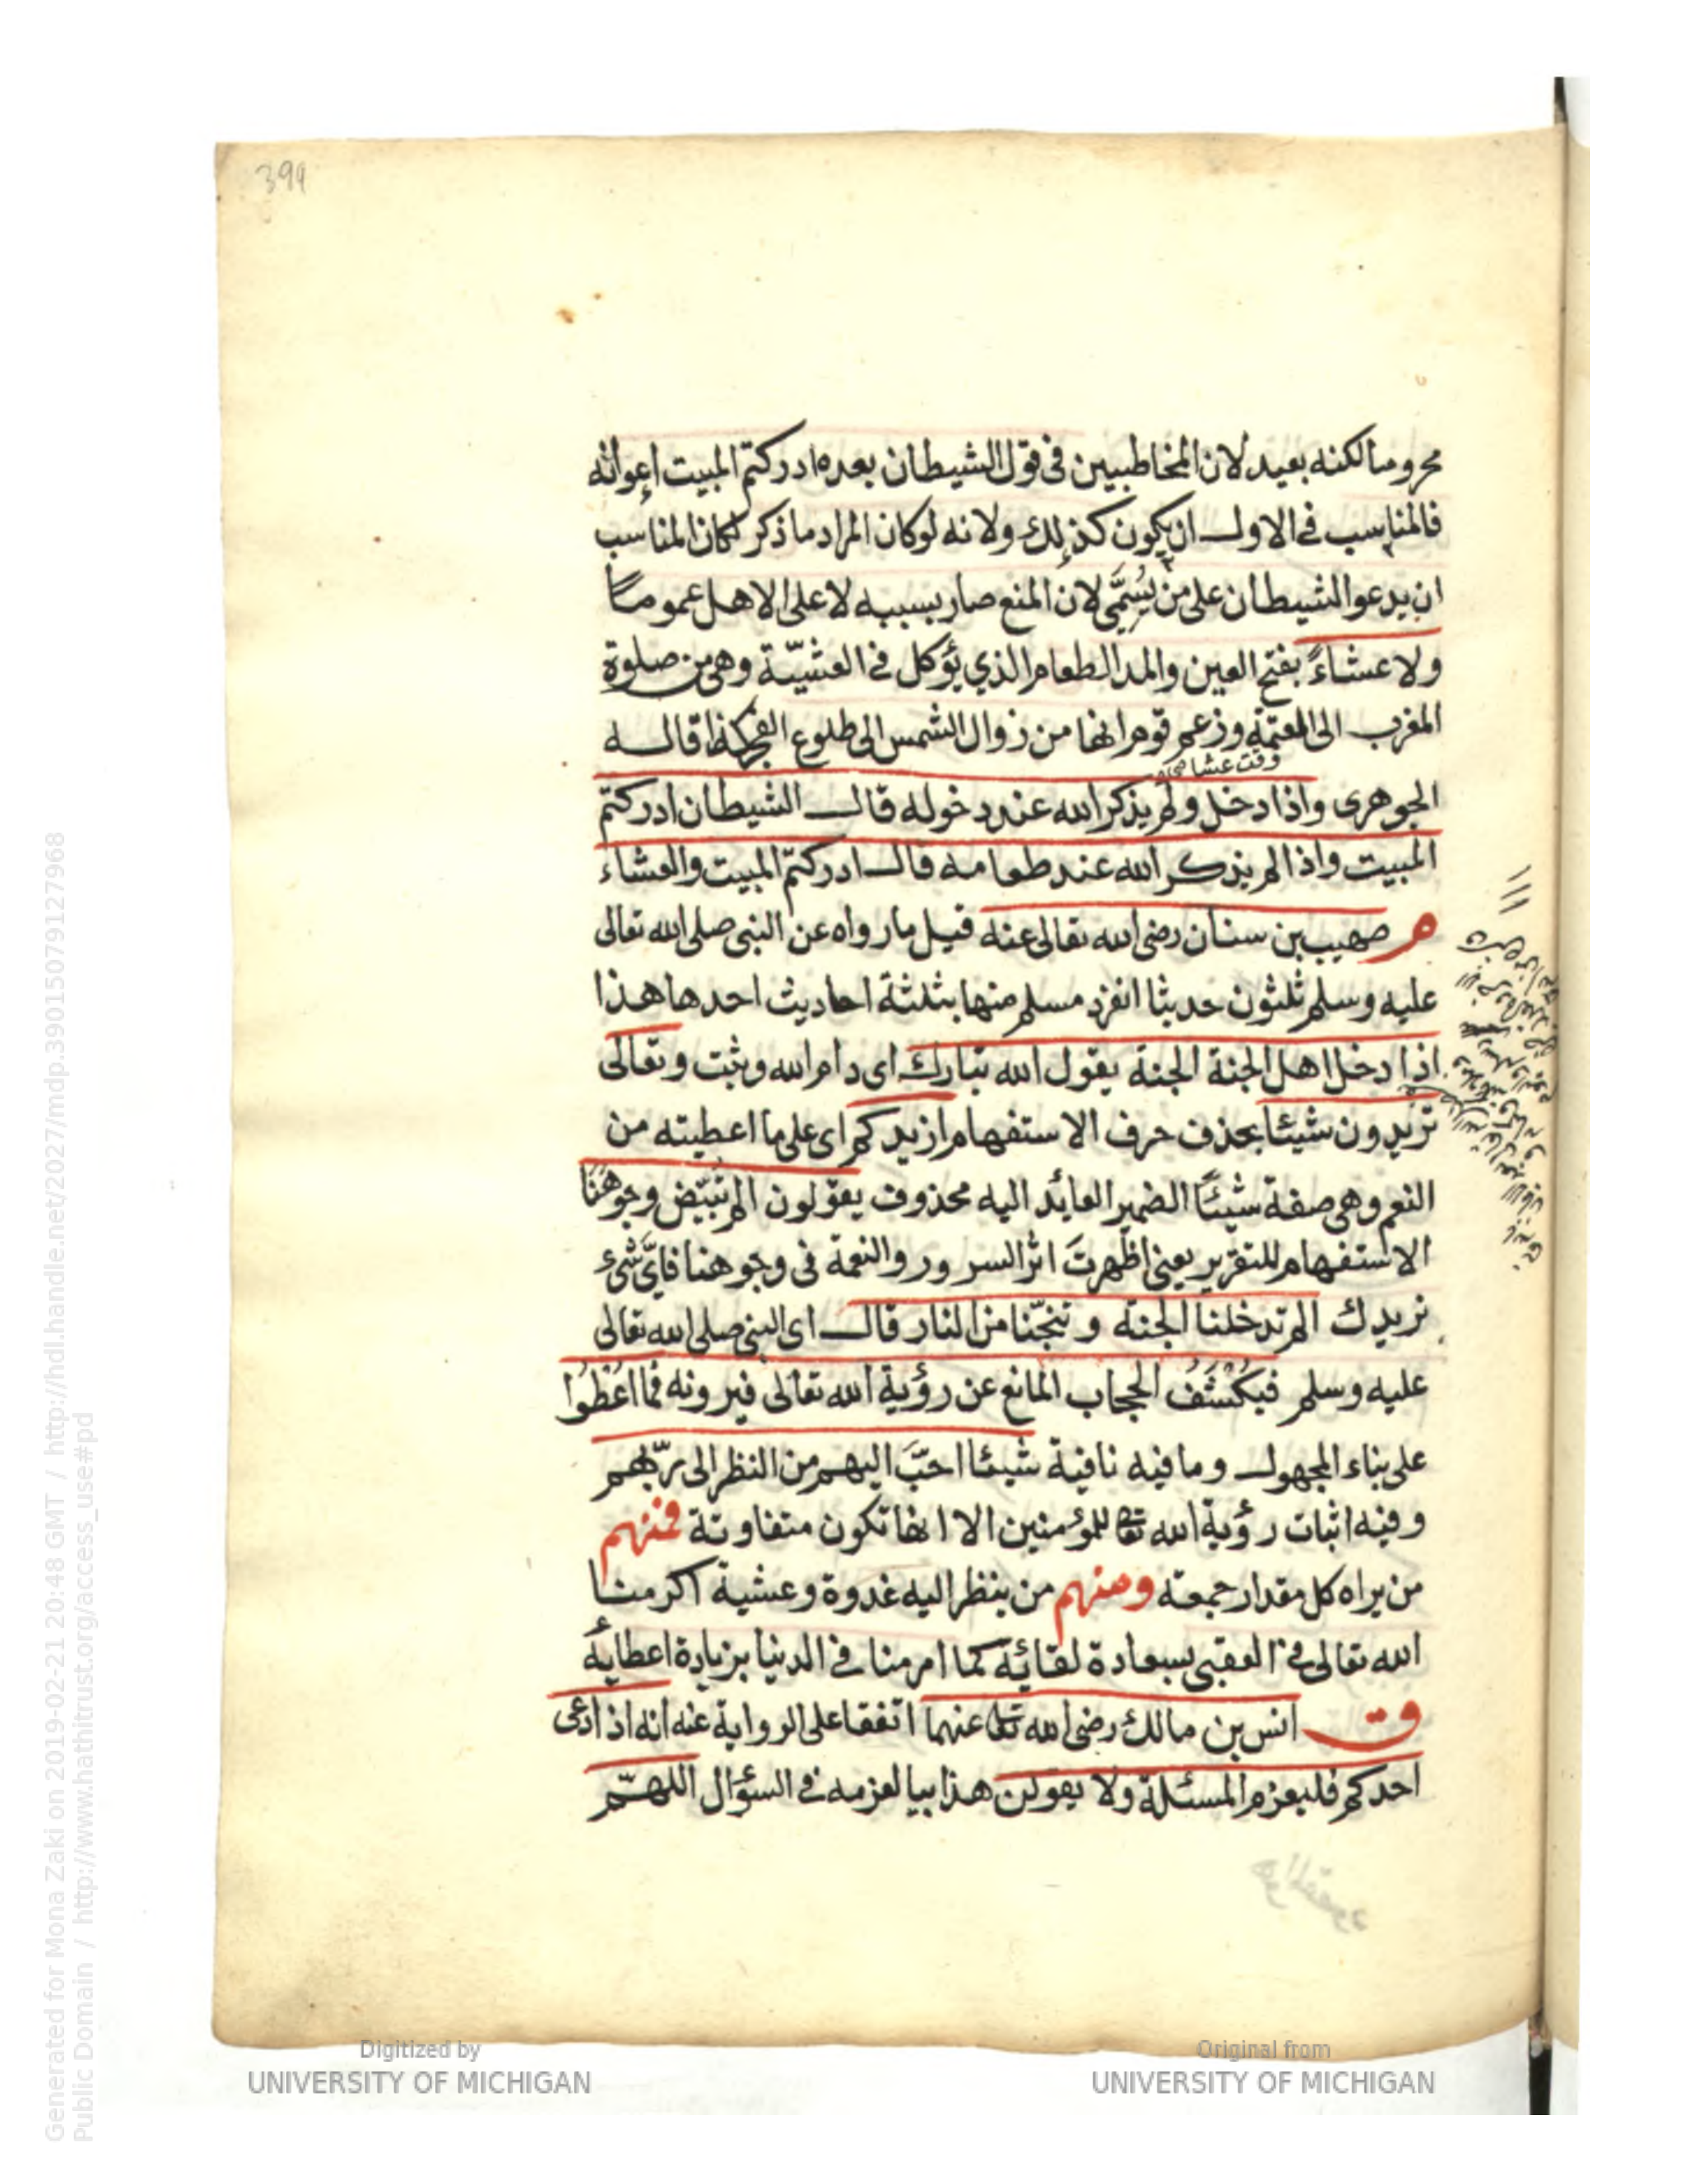 399
محروما لكنه بعيد لان المخاطبين فى قول الشيطان بعده ادركتم المبيت اعوانه
فالمناسب فى الاول ان يكون كذلك ولانه لو كان المراد ما ذكر لكان المناسب
ان يدعو الشيطان على من يُسَمّى لان المنع صار بسببه لا على الاهل عموما
ولا عشاءً بفتح العين والمد الطعام الذي يؤكل فى العشيّة وهى من صلوة
المغرب الى العتمة وزعم قوم انها من زوال الشمس الى طلوع الفجر كذا قاله
وقت عشا
الجوهرى واذا دخل ولم يذكر الله عند دخوله قال الشيطان ادركتم
المبيت واذا لم يذكر الله عند طعامه قال ادركتم المبيت والعشاء
م صهيب بن سنان رضى الله تعالى عنه قيل ما رواه عن النبى صلى الله تعالى
عليه وسلم ثلثون حديثا انفرد مسلم منها بثلثة احاديث احدها هذا
اذا دخل اهل الجنة الجنة يقول الله تبارك اى دام الله وثبت وتعالى
تريدون شيئا بحذف حرف الاستفهام ازيدكم اى على ما اعطيته من
النعم وهى صفة شيئًا الضمير العائد اليه محذوف يقولون الم تبيّض وجوهنا
الاستفهام للتقرير يعنى اظهرتَ اثر السرور والنعمة فى وجوهنا فاىّ شىء
نريدك الم تدخلنا الجنة وتنجّنا من النار قال اى النبى صلى الله تعالى
عليه وسلم فيُكْشَفُ الحجاب المانع عن رؤية الله تعالى فيرونه فما اُعْطُوا
على بناء المجهول وما فيه نافية شيئا احبّ اليهم من النظر الى ربّهم
وفيه اثبات رؤية الله تع للمؤمنين الا انها تكون متفاوتة فمنهم
من يراه كل مقدار جمعة ومنهم من ينظر اليه غدوة وعشية اكرمنا
الله تعالى فى العقبى بسعادة لقائه كما امرمنا فى الدنيا بزيادة اعطايه
ق انس بن مالك رضى الله تعا عنهما اتفقا على الرواية عنه انه اذا دعى
احدكم فليعزم المسئلة ولا يقولن هذا بيا لعزمه فى السؤال اللهمّ
Digitized by
UNIVERSITY OF MICHIGAN
Original from
UNIVERSITY OF MICHIGAN
Generated for Mona Zaki on 2019-02-21 20:48 GMT / http://hdl.handle.net/2027/mdp.39015079127968
Public Domain / http://www.hathitrust.org/access_use#pd